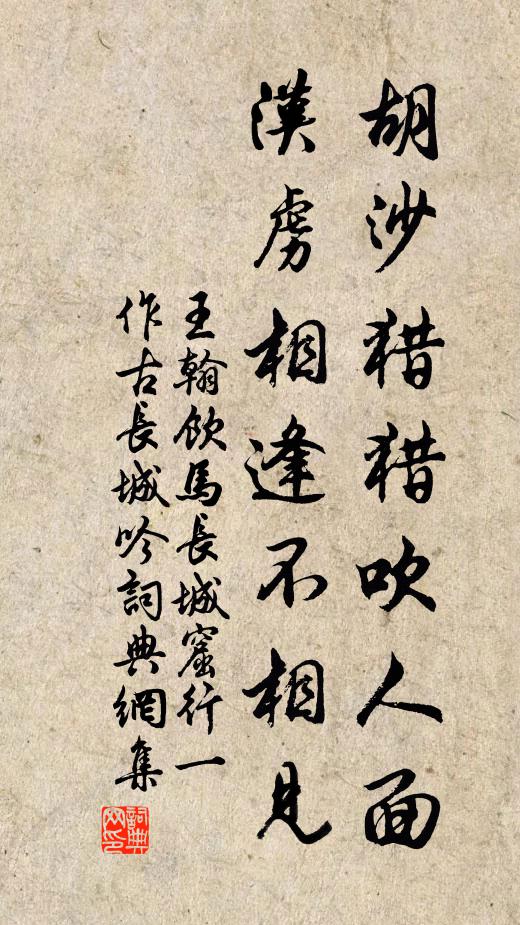 胡沙猎猎吹人面
漢虜相逢不相見
王翰飲馬長城窟行一
作古長城吟詞典網集
詞典
网印